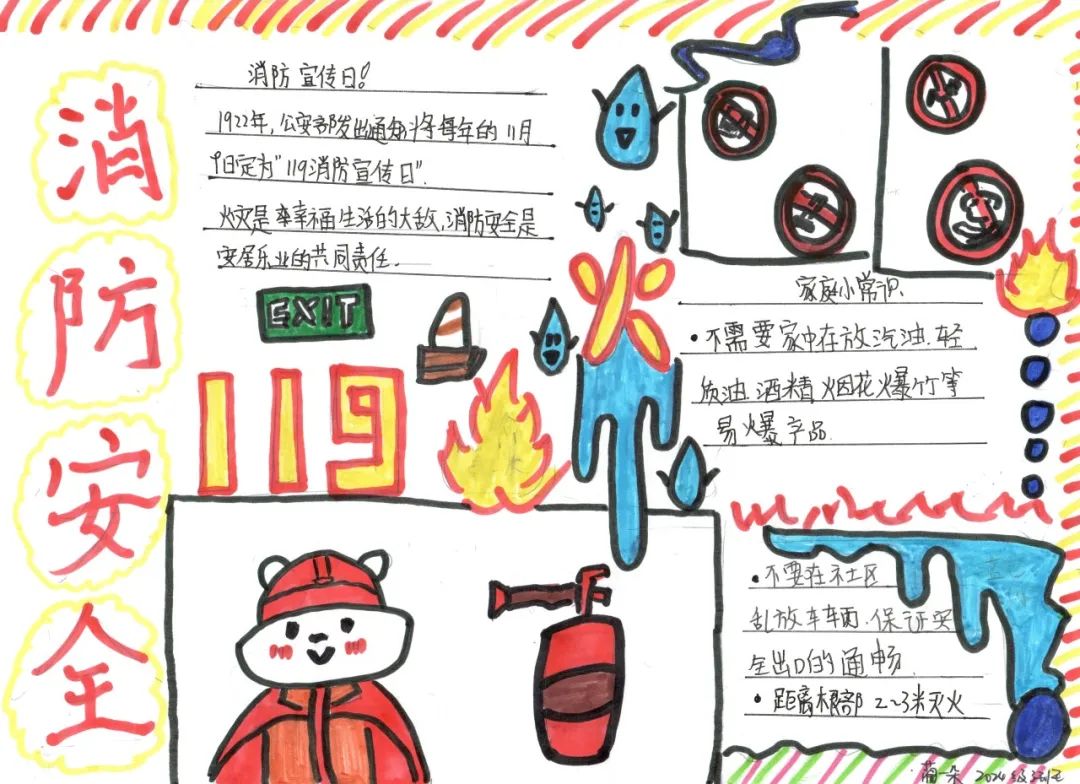 消防安全
消防宣传日!
1922年,公安部发出通知将每年的11月
9日定为"119消防宣传日".
火灾是幸福生活的大敌,消防安全是
安居乐业的共同责任.
EXIT
119
火
家庭小常识.
•不需要家中存放汽油.轻
质油.酒精.烟花爆竹等
易爆产品.
•不要在社区
乱放车辆.保证安
全出口的通畅.
•距离根部2~3米灭火
2024级